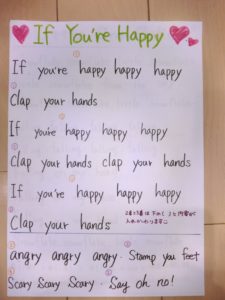 If You're Happy
①
If you're happy happy happy
②
Clap your hands
①
If you're happy happy happy
②
Clap your hands clap your hands
①
If you're happy happy happy
②
Clap your hands
2番3番は下の( )と内容が
入れかわります
① ②
angry angry angry · Stamp you feet
① ②
Scary Scary Scary · Say oh no!